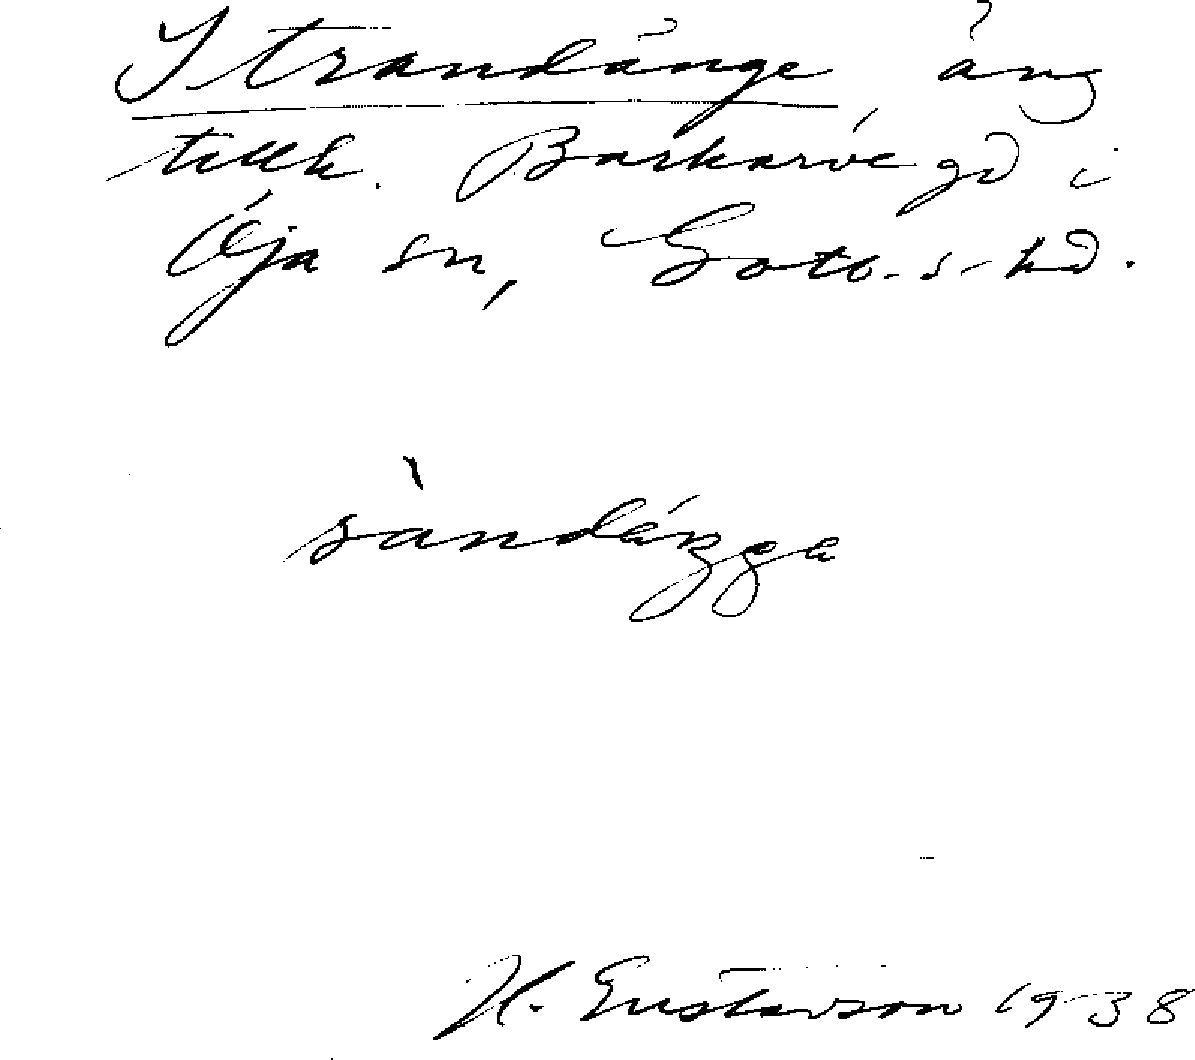 Strandänge äng
tillh. Barkarve gd i
Öja sn, Gotl. s. hd.
sàndáŋge
H. Gustavson 1938